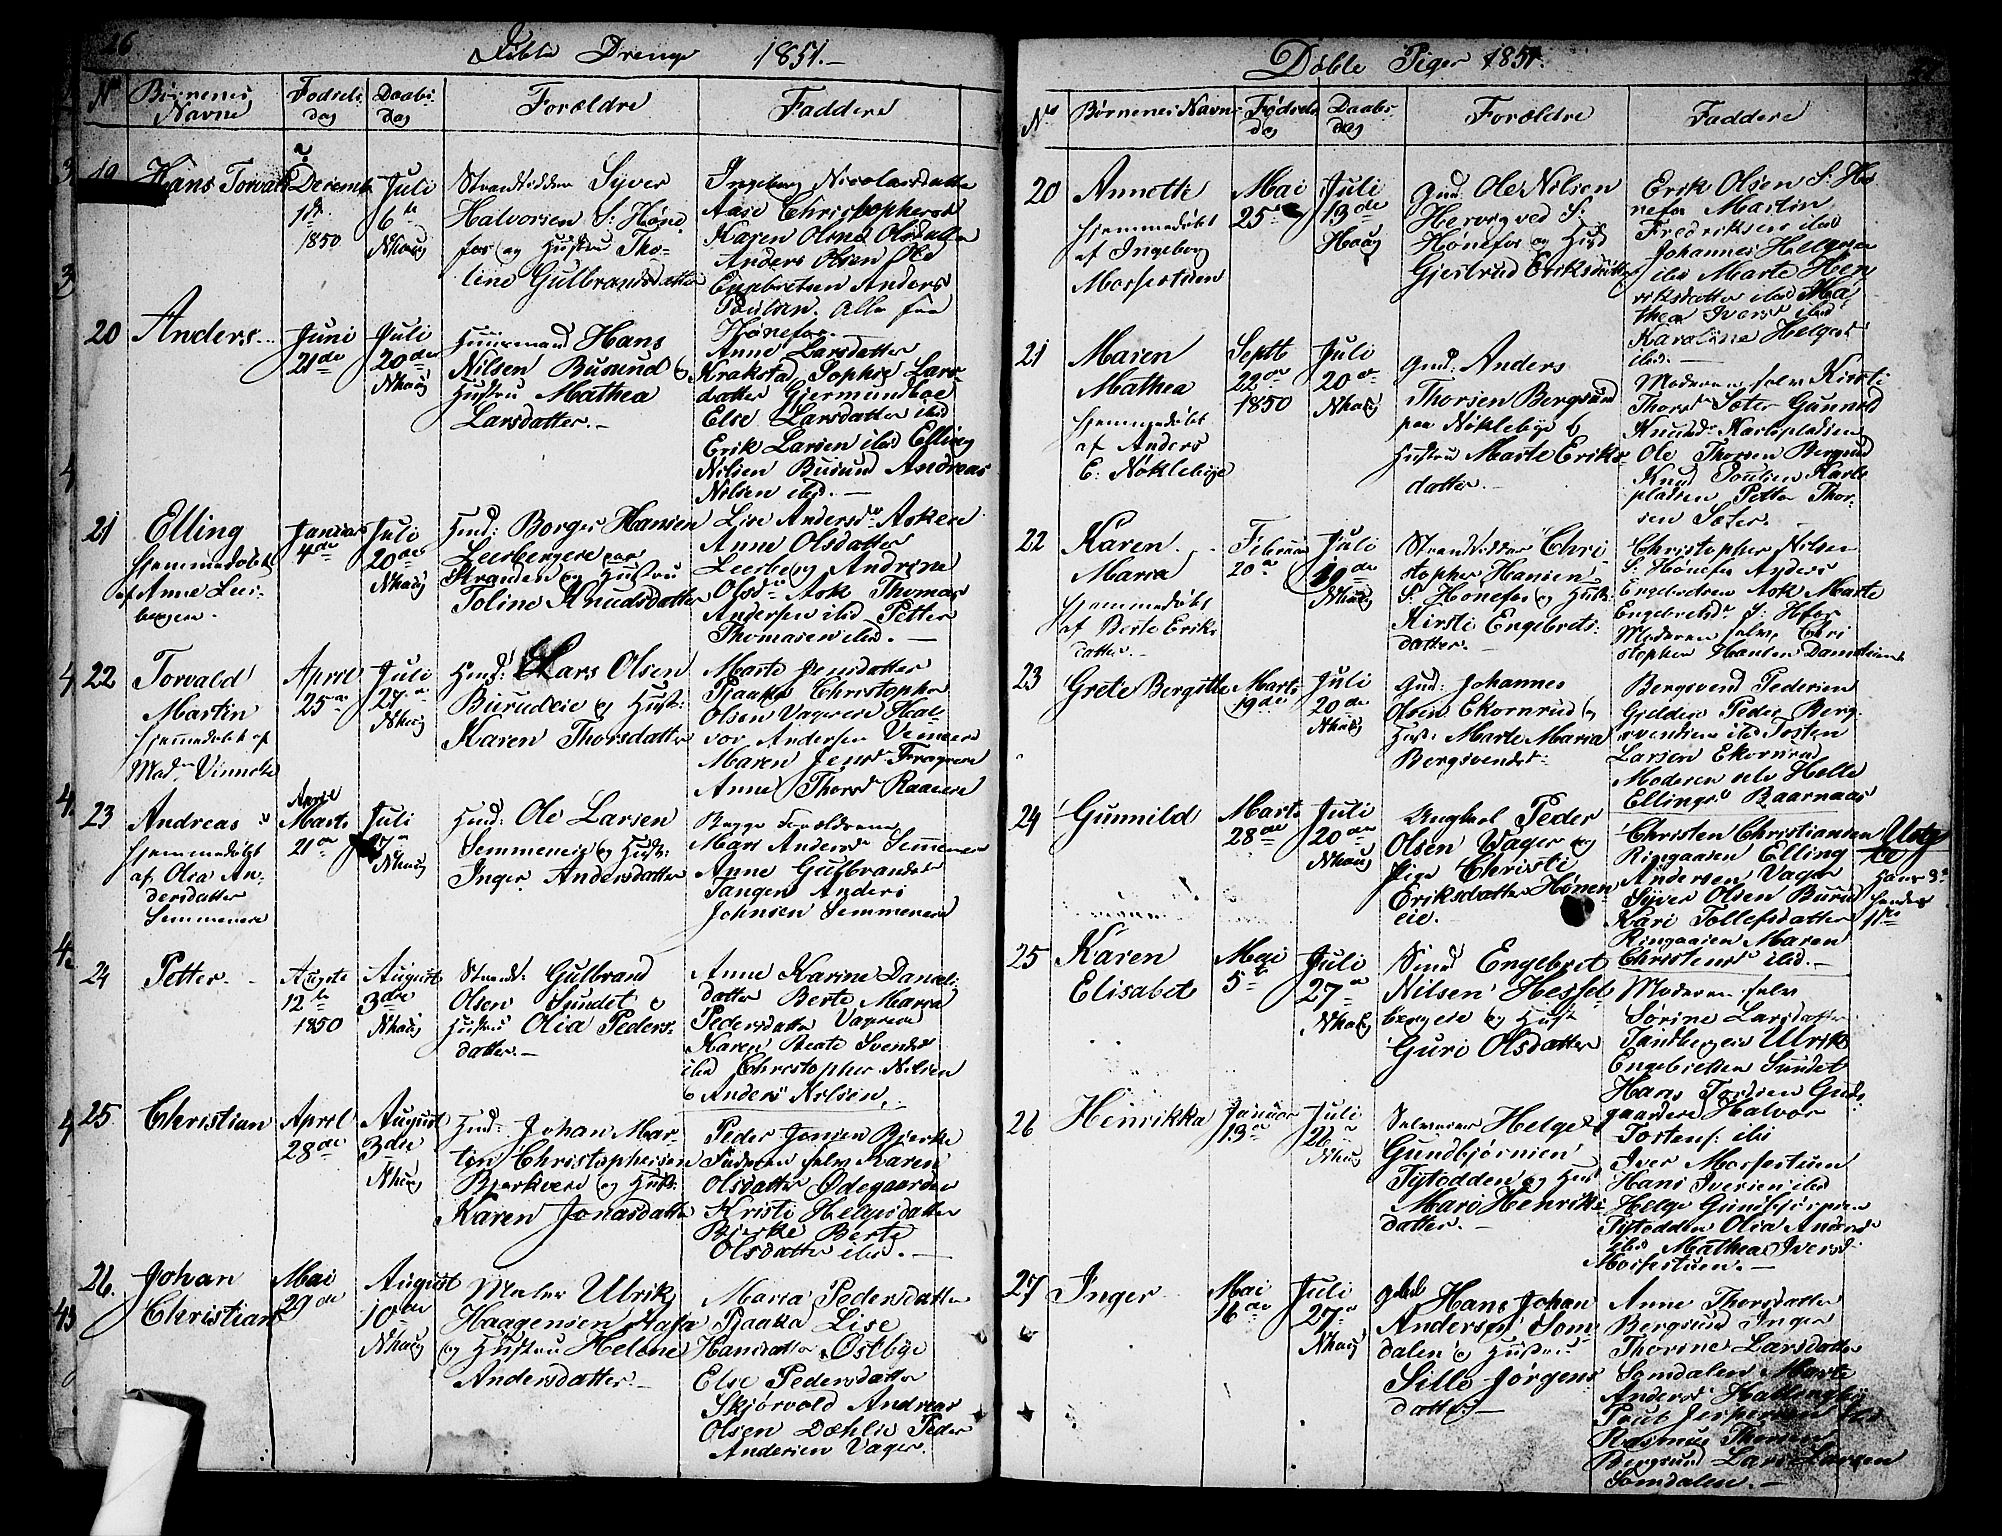 26
Døbte Drenge 1851.-
No
Børnenes
Navne
Fødsels
dag
Daabs
dag
Forældre
Faddere
19
Hans Torvald
Decemb
1ste
1850
Juli
6te
Nhoug
Strandsidder Syver
Halvorsen S: Høne
fos og Hustru Tho-
line Gulbrandsdatter
Ingeborg Nicolaisdatter
Aase Christophersd
Karen Olsne Olsdatter
Anders Olsen Ole
Engebretsen Anders
Poulsen. Alle fra
Hønefos.-
20
Anders
Juni
21de
Juli
20de
Nhoug
Huusmand Hans
Nilsen Busund og
Hustru Mathea
Larsdatter.-
Anne Larsdatter
Krakstad Sophie Lars-
datter Gjermundboe
Else Larsdatter ibid
Erik Larsen ibid Elling
Nilsen Busund Andreas
Nilsen ibid.-
21
Elling
hjemmedøbt
af Anne Leer-
bergen.
Januar
4de
Juli
20de
Nhoug
Husd: Borger Hansen
Leerbergeie
og Hustru
Toline Knudsdatter
Lise Andersd: Askere
Anne Olsdatter
Leerberg Andrine
Olsd: Ask Thomas
Andersen ibid Petter
Thomasen ibid.-
22
Torvald
Martin
hjemmedøbt af
Mad: Vinnete
April
25de
Juli
27de
Nhoug
Husd: Lars Olsen
Burudeie og Hust:
Karen Thorsdatter
Marte Jensdatter
Pjaaka Christopher
Olsen Vagere Hal-
vor Andersen Veimere
Maren Jensd:
Anne Thorsd:
23
Andreas
hjemmedøbt
af Olia An-
dersdatter
Semmenere
April
Marts
21de
27de
Juli
Nhoug
Husd: Ole Larsen
Semmeneie og Hust:
Inger Andersdatter
Begge Forældrene
Mari Andersd: Semmene
Anne Gulbrandsd:
Tangen Anders
Johnsen Semmenere
24
Petter
Auguste
12te
1850
August
3die
Nhoug
Strands: Gulbrand
Olsen Sundet og
Hustru Olia Peders-
datter.-
Anne Karine Daniels-
datter Berte Maria
Pedersdatter Vagere
Karen Beate Svends
ibid Christopher Nilsen
og Anders Nilsen.
25.
Christian
April
28de
August
3die
Nhoug
Husd: Johan Mar-
tin Christophersen
Bjerkeere og Hust:
Karen Jonasdatter
Peder Jonsen Bjerke
Faderen selv Karen
Olsdatter Ødegaarden
Kristi Helgesdatter
Bjerke Berte
Olsdatter ibid.-
26.
Johan
Christian
Mai
29de
August
10de
Nhoug
Maler Ulrik
Haagensen
og Hustru Helene
Andersdatter
Maria Pedersdatter
Pjaaka Lise
Hansdatter Østbye
Else Pedersdatter
Skjørvold Andreas
Olsen Dæhlie Peder
Andersen Vager.
Døbte Piger 1851.
No
Børnenes Navne
Fødsels
dag
Daabs-
dag
Forældre
Faddere
20
Annethe
hjemmedøbt
af Ingeborg
Mosfestuen
Mai
25
Juli
13de
Houg
Gmd: Ole Nilsen
Hervig ved S:
Hønefos og Hust
Gjertrud Eriksdatter
Erik Olsen S: Hø-
nefos Martin
Fredriksen ibid
Johannes Helgesen
ibid Marte Hen
riksdatter ibid Ma
thea Ivers ibid
Karoline Helgesd
ibid.-
21
Maren
Mathea
hjemmedøbt
af Anders
E. Nøklebye
Septb
22de
1850
Juli
20de
Nhoug
Gmd: Anders
Thorsen Bergsund
paa Nøklebye og
Hustru Marte Eriks-
datter.
Moderen selv Kirsti
Thorsd Sæter Gunild
Knudsd Karlspladsen
Ole Thorsen Bergsund
Knud Poulsen Karls
pladsen Petter Thor-
sen Sæter.
22
Karen
Maria
hjemmedøbt
af Berte Eriks
datter.-
Februar
20de
Juli
20de
Nhoug
Strandsidder Chri
stopher Hansen
S: Hønefos og Hust:
Kirsti Engebrets-
datter.-
Christopher Nilsen
S: Hønefos Anders
Engebretsen Ask Marte
Engebretsd: S: Hfos
Moderen selv Chri
stopher Hansen Damstuen
23
Grete Bergitte
Marts
19de
Juli
20de
Nhoug
Gmd: Johannes
Olsen Ekornrud og
Hust: Marte Maria
Bergsvendsd:
Bergsvend Pedersen
Gjelden Peder Berg-
svendsen ibid Tosten
Larsen Ekornrud
Moderen selv Helle
Ellingsd: Baarnaas
24
Gunnild
Marts
28de
Juli
20de
Nhoug
Ungkarl Peder
Olsen Vager og
Pige Christi
Eriksdatter Hønen
eie.
Christen Christiansen
Ringaasen Elling
Andersen Vager
Syver Olsen Burud
Kari Tollefsdatter
Ringaasen Maren
Christensd: ibid.-
Uægte
25
Karen
Elisabet
Mai
5te
Juli
27de
Nhoug
Engebret
Nilsen Hessel-
bergeie og Hust
Guri Olsdatter
Moderen selv
Sørine Larsdatter
Sandbergeie Ulrik
Engebretsen Sundet
Hans Tordsen Guds-
gaardere Halvor
Tostens: ibid
26
Henrikka
Januar
13de
Juli
26
Nhoug
Selveier Helge
Gundbjørnsen
Tytodden og Hust
Mari Henriks
datter.-
Iver Mosfestuen
Hans Iversen ibid
Helge Gundbjørnsen
Tytodden Olia Andersd
ibid Mathea Iversd
Mosfestuen.-
27
Inger
Mai
16de
Juli
27de
Nhoug
Gmd Hans Johan
Andersen Som
dalen og Hustru
Sille Jørgens
datter.-
Anne Thorsdatter
Bergsund Inger
Thorine Larsdatter
Somdalen Marte
Andersd Halling
Poul Jespersen ibid
Rasmus Thorsen
Bergsund Lars Larsen
Somdalen.-